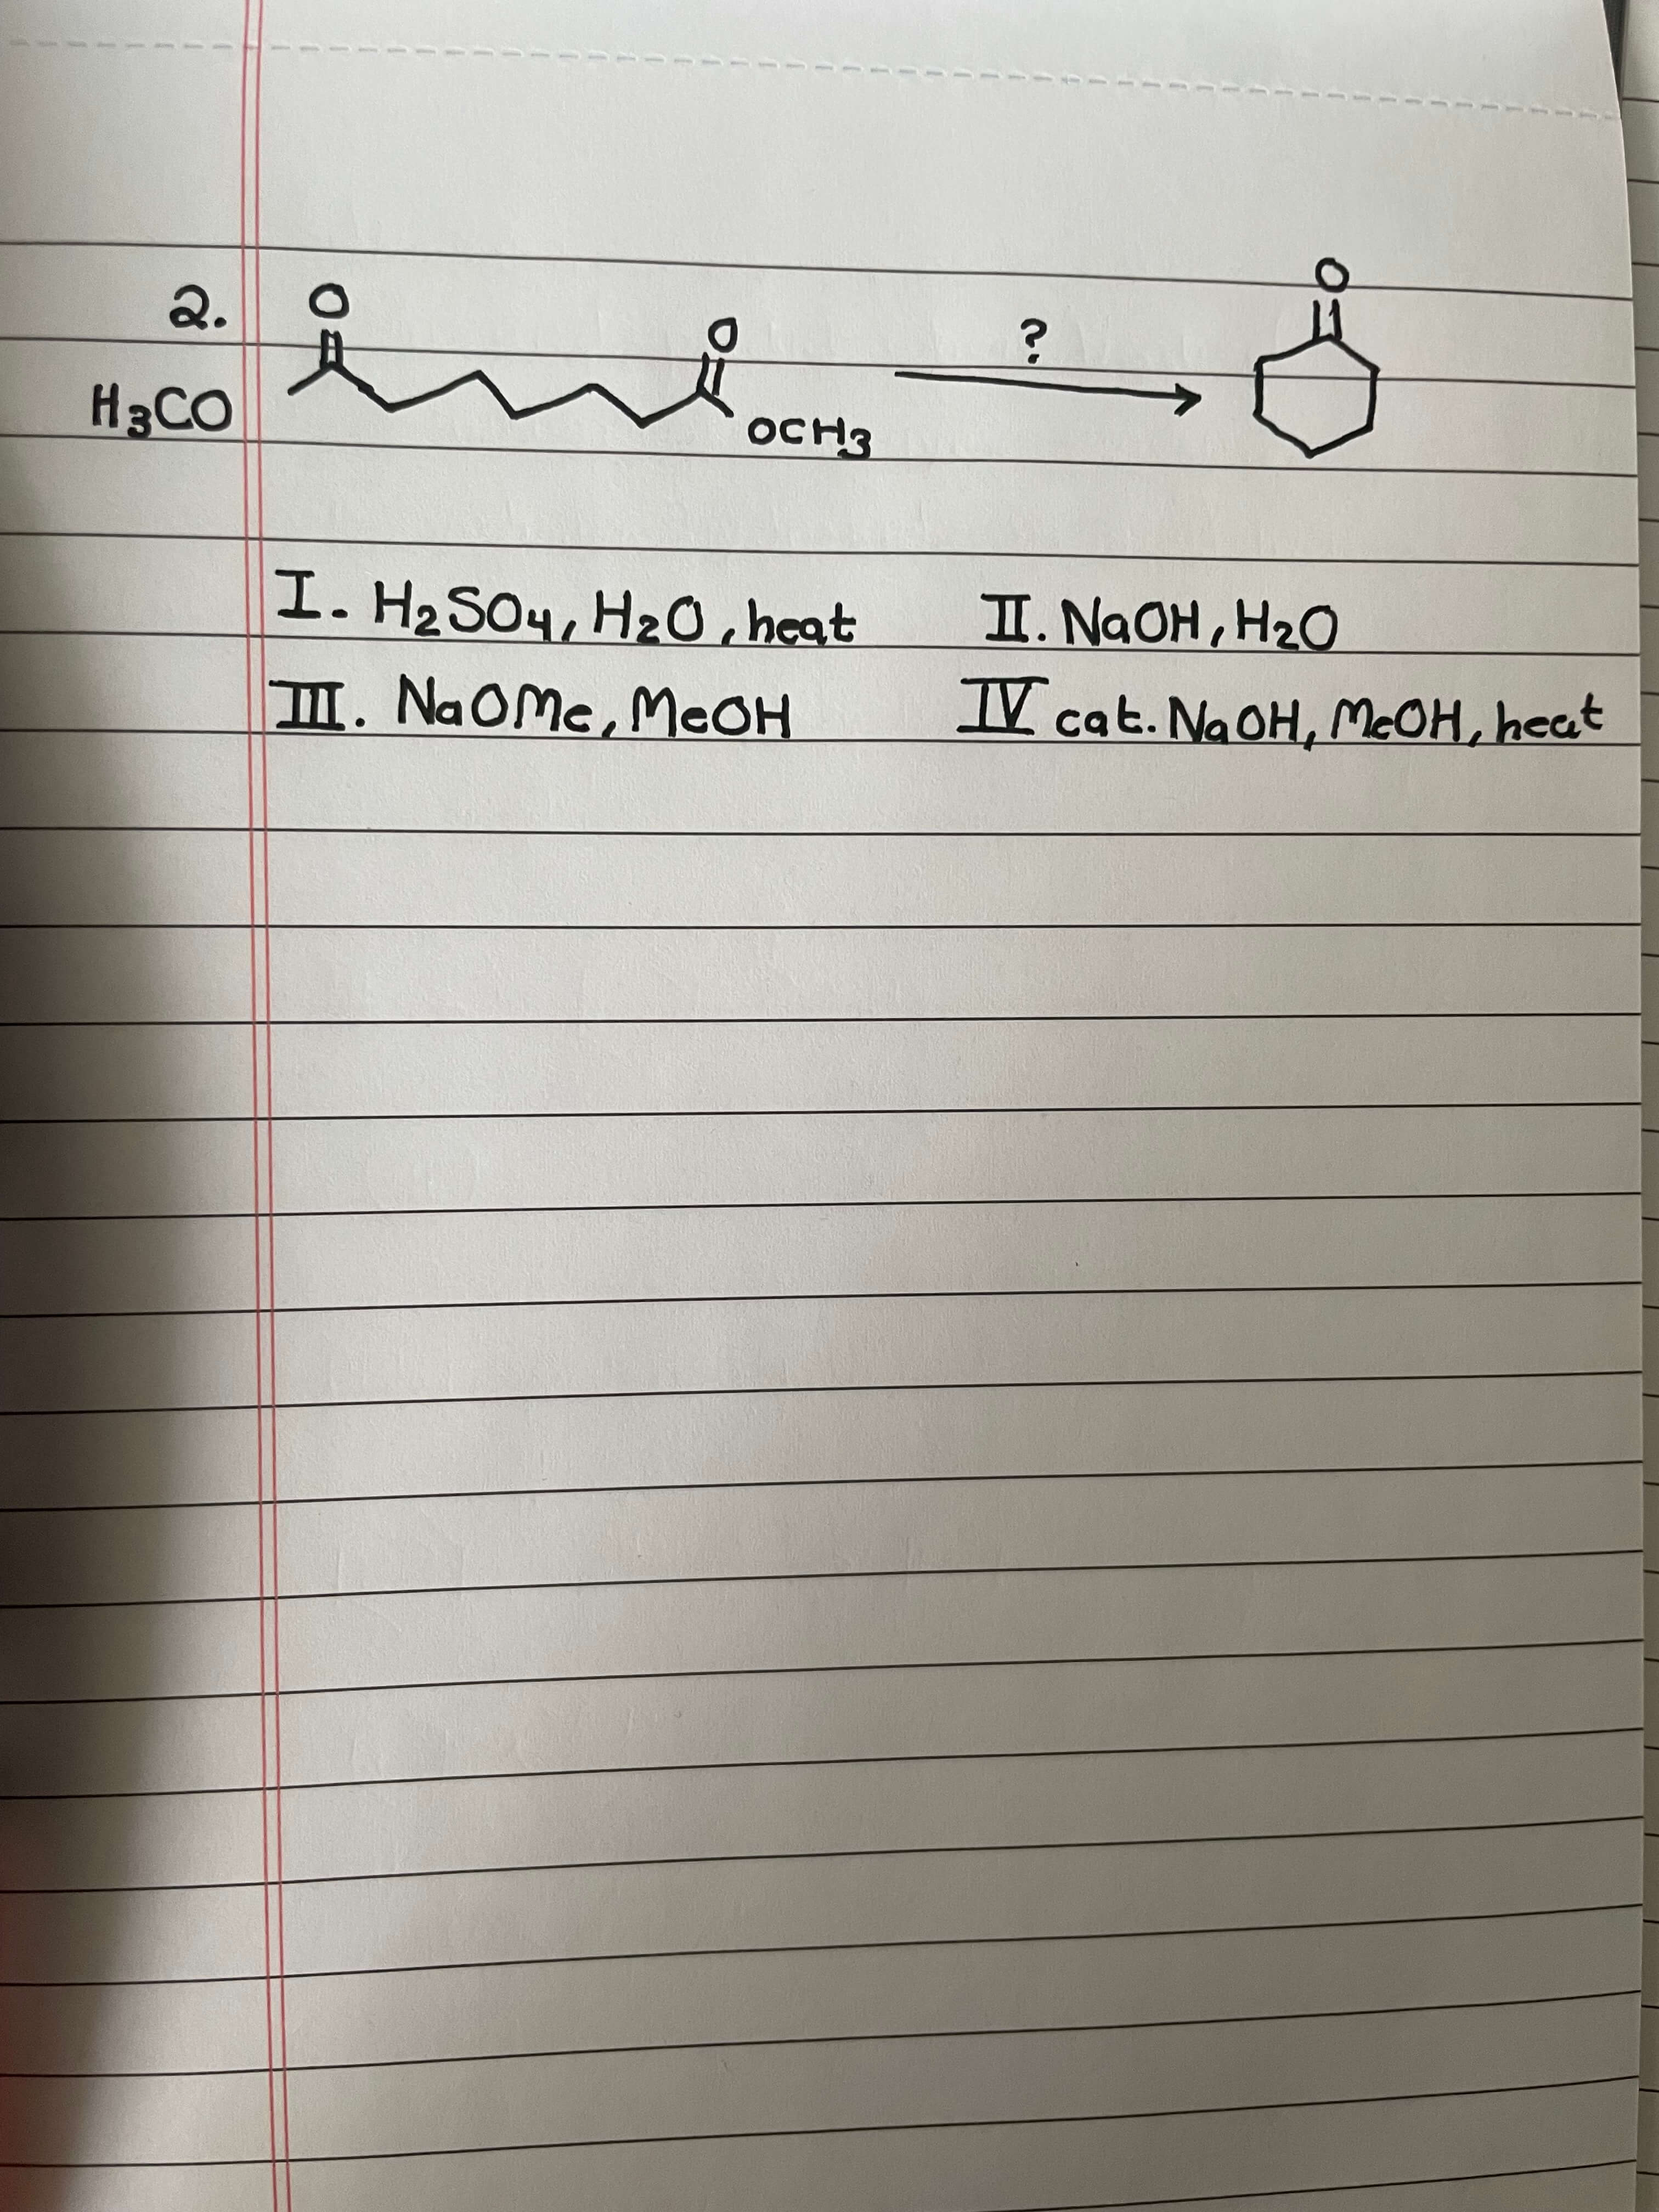 2.
O O ? O
H3CO OCH3
I. H2SO4, H2O, heat II. NaOH, H2O
III. NaOMe, MeOH IV cat. NaOH, MeOH, heat